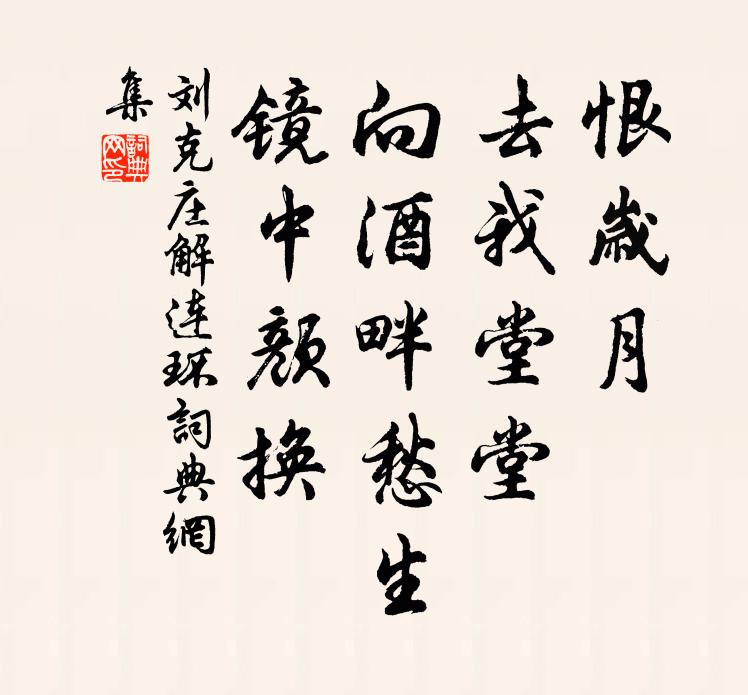 恨歲月
去我堂堂
向酒畔愁生
镜中颜换
刘克庄解连环詞典網
集
詞典
网印